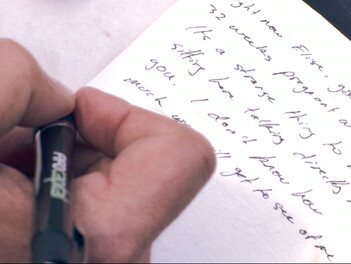 ght now Elise, you
32 weeks pregnant a
It's a strange thing to
sitting here talking directly
you. I don't know how
much will get to see of me